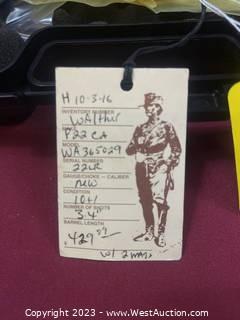 H 10-3-16
INVENTORY NUMBER
WAlther
P22 CA
MODEL
WA365029
SERIAL NUMBER
22LR
GAUGE/CHOKE — CALIBER
NEW
CONDITION
10+1
NUMBER OF SHOTS
3.4"
BARREL LENGTH
$ 429
w/ 2 mags
© 2023 - www.WestAuction.com